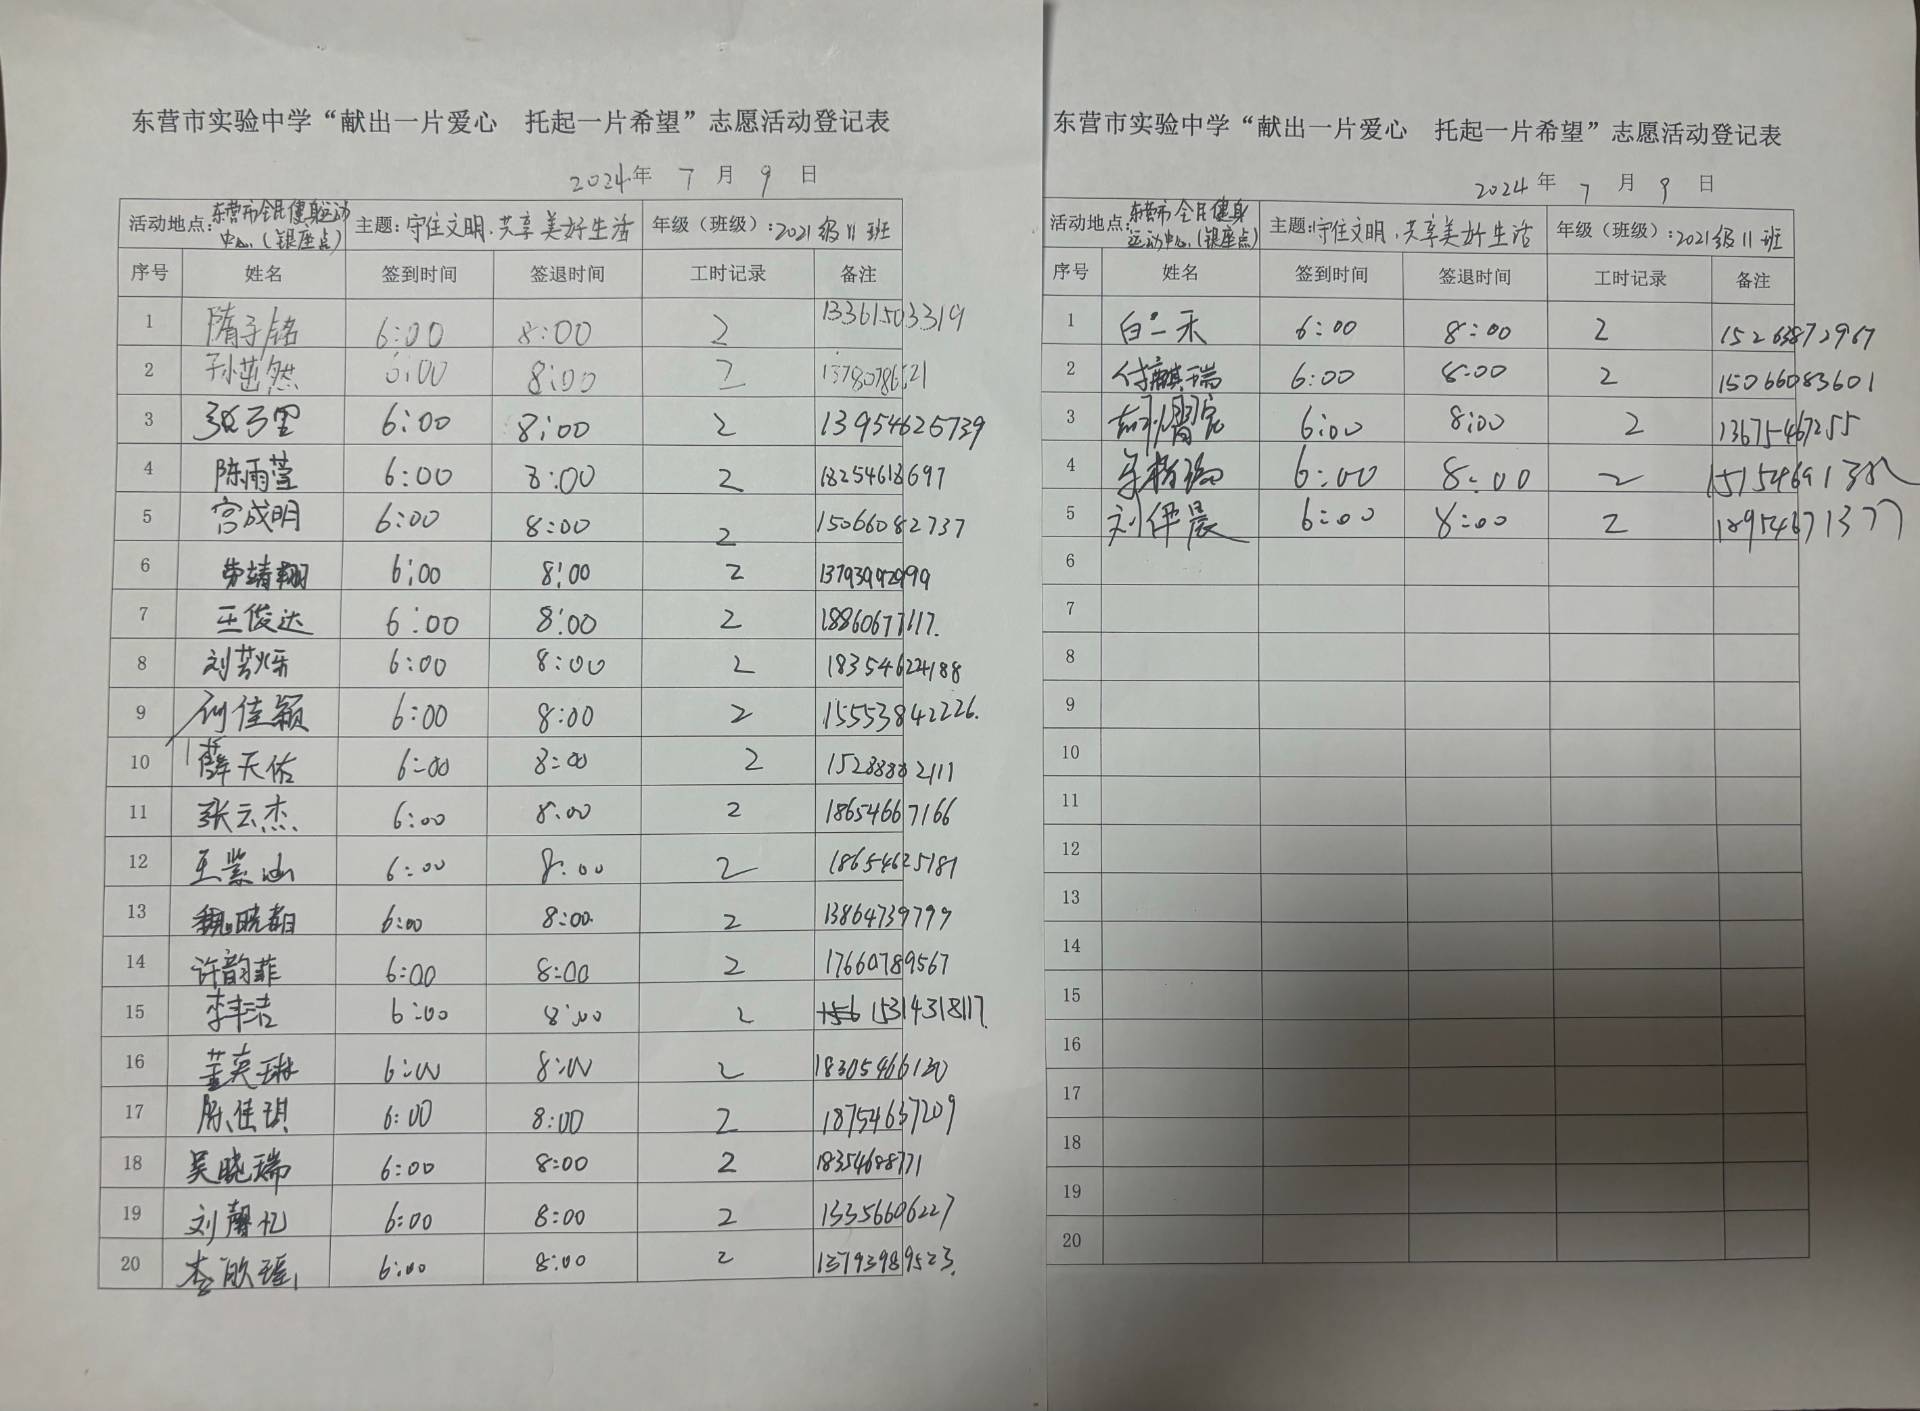 东营市实验中学“献出一片爱心 托起一片希望”志愿活动登记表
2024年 7 月 9 日
活动地点:东营市全民健身运动中心(银座点) 主题:守住文明,共享美好生活 年级(班级):2021级11班
序号 姓名 签到时间 签退时间 工时记录 备注
1 隋子铭 6:00 8:00 2 13361503319
2 孙茁然 6:00 8:00 2
3 张万里 6:00 8:00 2 13954625739
4 陈雨萱 6:00 8:00 2 18254618697
5 宫成明 6:00 8:00 2 15066082737
6 6:00 8:00 2 13793992999
7 王俊达 6:00 8:00 2 18860677117.
8 刘 6:00 8:00 2 18354624188
9 何佳颖 6:00 8:00 2 15553842226.
10 薛天佑 6:00 8:00 2 15288882111
11 张云杰 6:00 8:00 2 18654667166
12 王紫涵 6:00 8:00 2 18654625187
13 魏晓 6:00 8:00 2 13864739799
14 许韵菲 6:00 8:00 2 17660789567
15 李洁 6:00 8:00 2 156 15314318117.
16 董英琳 6:00 8:00 2 18305466120
17 陈佳琪 6:00 8:00 2 18754637209
18 吴晓瑞 6:00 8:00 2 18354688771
19 刘馨忆 6:00 8:00 2 13356606227
20 李欣瑶 6:00 8:00 2 13793989523.
东营市实验中学“献出一片爱心 托起一片希望”志愿活动登记表
2024年 7 月 9 日
活动地点:东营市全民健身运动中心(银座点) 主题:守住文明,共享美好生活 年级(班级):2021级11班
序号 姓名 签到时间 签退时间 工时记录 备注
1 白一禾 6:00 8:00 2 15263872967
2 付麒瑞 6:00 8:00 2 15066083601
3 6:00 8:00 2 13675467255
4 6:00 8:00 2
5 刘伊晨 6:00 8:00 2 18954671377
6
7
8
9
10
11
12
13
14
15
16
17
18
19
20